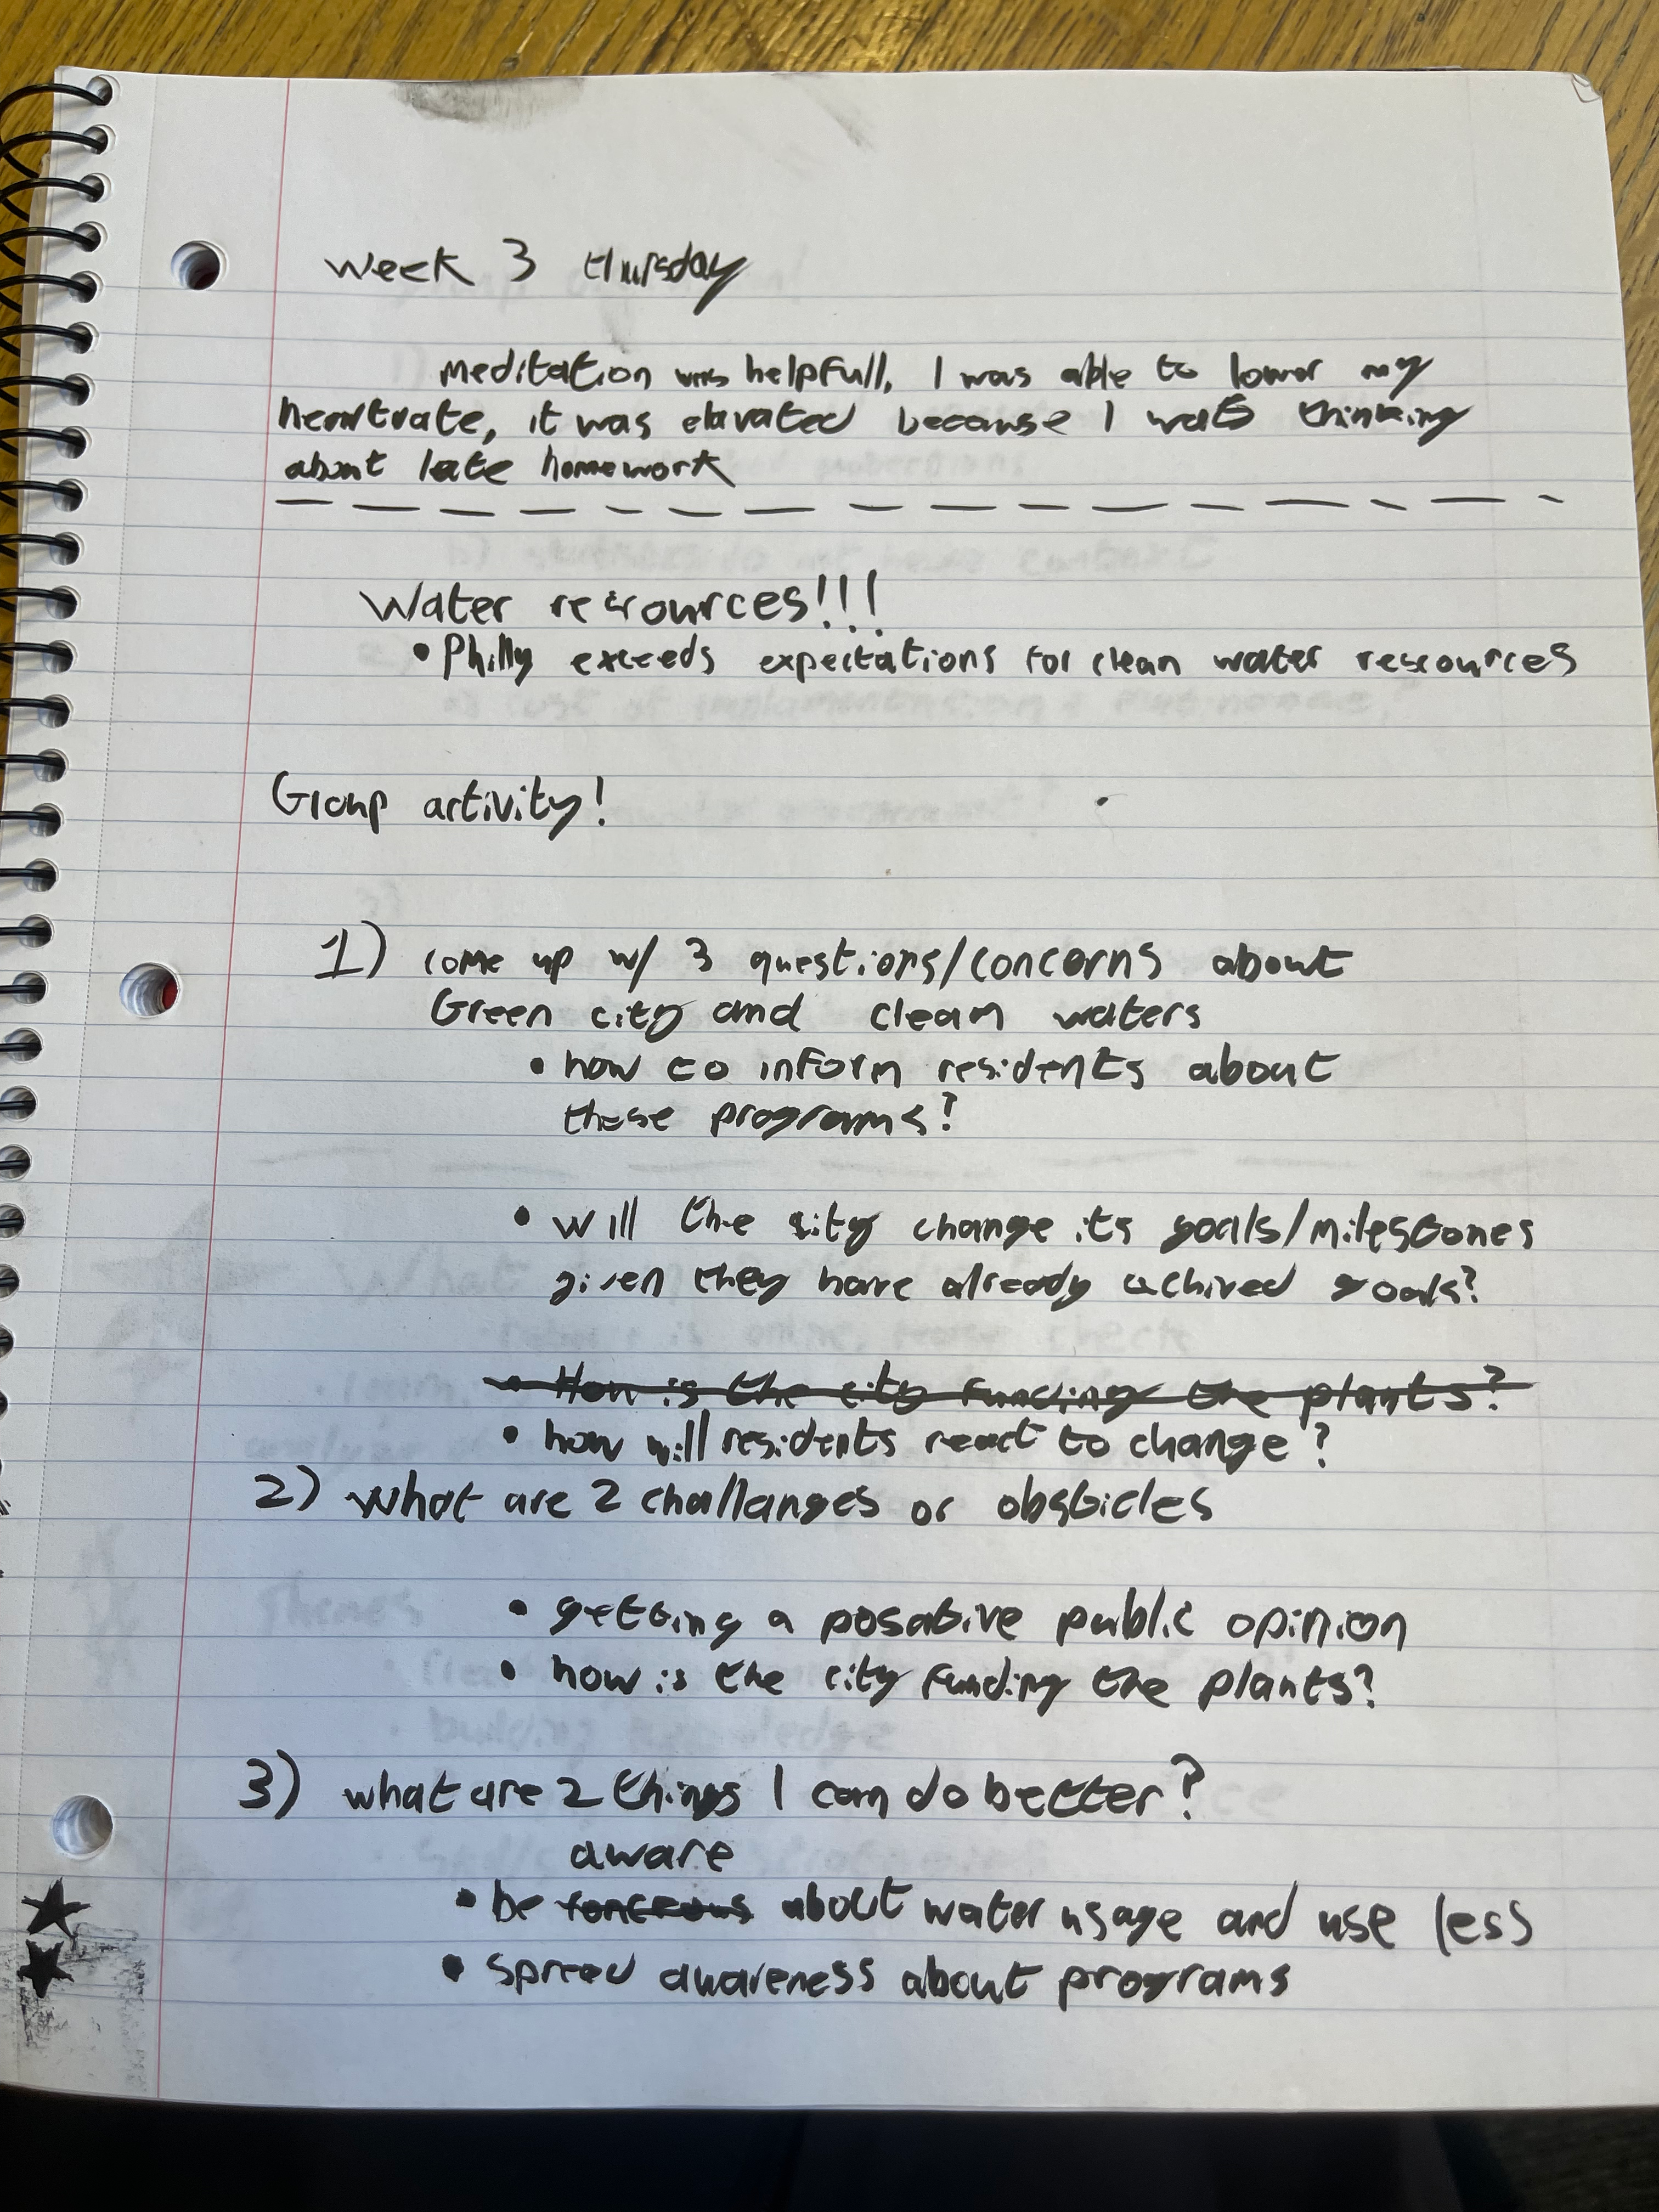 Week 3 thursday
Meditation was helpfull, I was able to lower my
heartrate, it was elavated because I was thinking
about late homework
Water resources!!!
• Philly exceeds expectations for clean water rescources
Group activity!
1) come up w/ 3 questions/concerns about
Green city and clean waters
• how to inform residents about
these programs?
• will the city change its goals/milestones
given they have already achived goals?
• How is the city funding the plants?
• how will residents react to change?
2) what are 2 challanges or obsticles
• getting a posative public opinion
• how is the city funding the plants?
3) what are 2 things I can do better?
aware
• be about water usage and use less
• spread awareness about programs